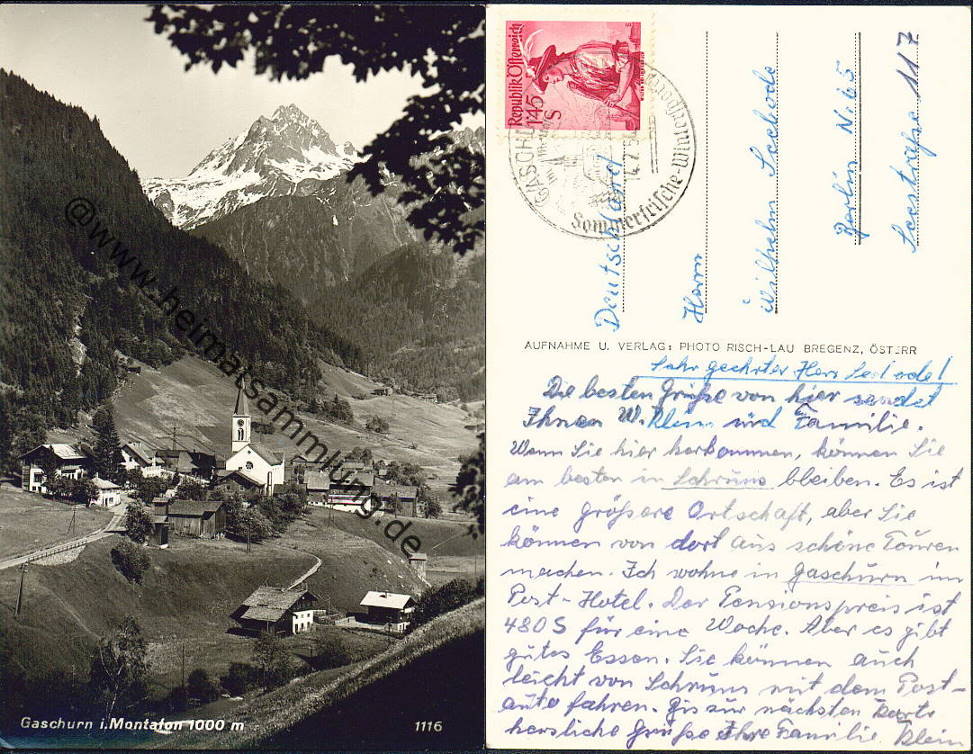 @www.heimatsammlung.de
Gaschurn i. Montafon 1000 m
1116
Republik Österreich
1·45
S
GASCHURN
14.7.5
Sommerfrische-Wintersport
Deutschland
Herrn
Wilhelm Seelode
Berlin N. 65
Seestraße 117
AUFNAHME U. VERLAG: PHOTO RISCH-LAU BREGENZ, ÖSTERR
Sehr geehrter Herr Seelode!
Die besten Grüße von hier sendet
Ihnen W. Klein und Familie.
Wenn Sie hier herkommen, können Sie
am besten in Schruns bleiben. Es ist
eine größere Ortschaft, aber Sie
können von dort aus schöne Touren
machen. Ich wohne in Gaschurn im
Post-Hotel. Der Pensionspreis ist
480 S für eine Woche. Aber es gibt
gutes Essen. Sie können auch
leicht von Schruns mit dem Post-
auto fahren. Bis zur nächsten Karte
herzliche Grüße Ihre Familie Klein